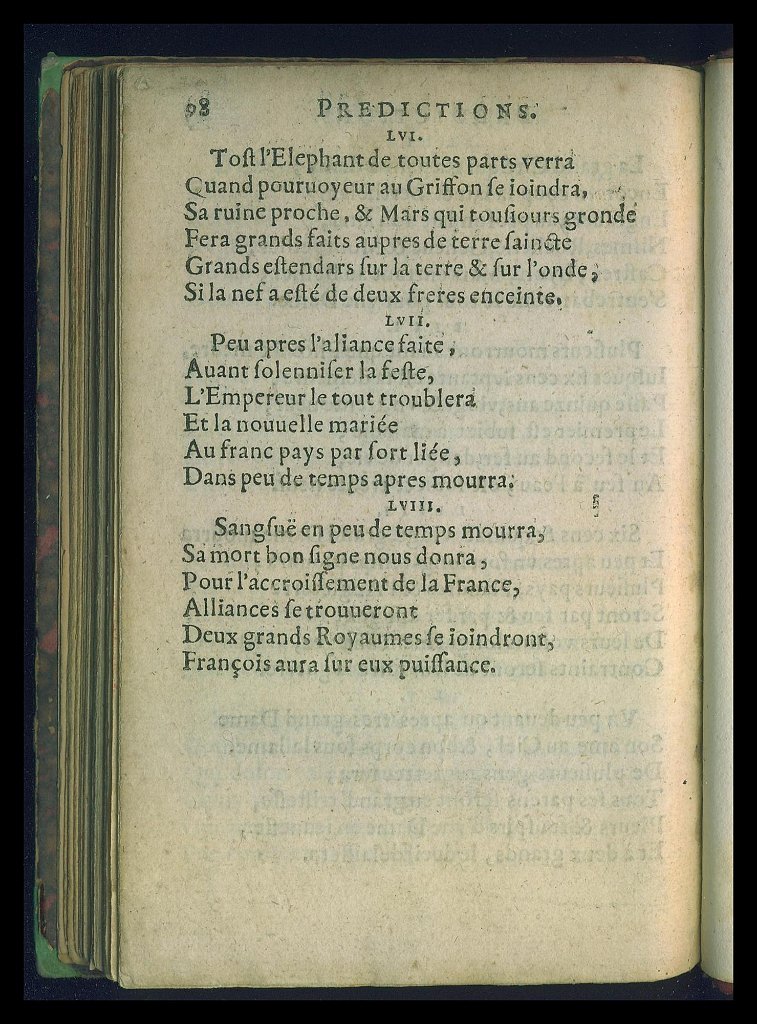 98 PREDICTIONS.
LVI.
Toſt l'Elephant de toutes parts verra
Quand pouruoyeur au Griffon ſe ioindra,
Sa ruine proche, & Mars qui touſiours gronde
Fera grands faits aupres de terre ſaincte
Grands eſtendars ſur la terre & ſur l'onde,
Si la nef a eſté de deux freres enceinte.
LVII.
Peu apres l'aliance faite,
Auant ſolenniſer la feſte,
L'Empereur le tout troublera
Et la nouuelle mariée
Au franc pays par ſort liée,
Dans peu de temps apres mourra.
LVIII.
Sangſuë en peu de temps mourra,
Sa mort bon ſigne nous donra,
Pour l'accroiſſement de la France,
Alliances ſe trouueront
Deux grands Royaumes ſe ioindront,
François aura ſur eux puiſſance.